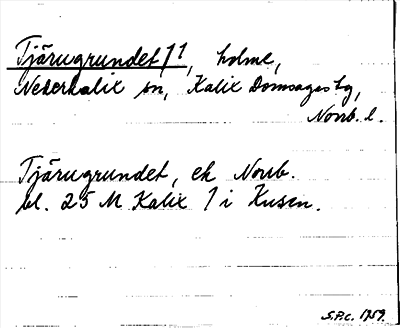 Tjärugrundet 11, holme,
Nederkalix sn, Kalix Domsagas tg,
Norrb. l.
Tjärugrundet, ek Norrb.
bl. 25 M Kalix 1 i Kusen.
S.P.C. 1959.